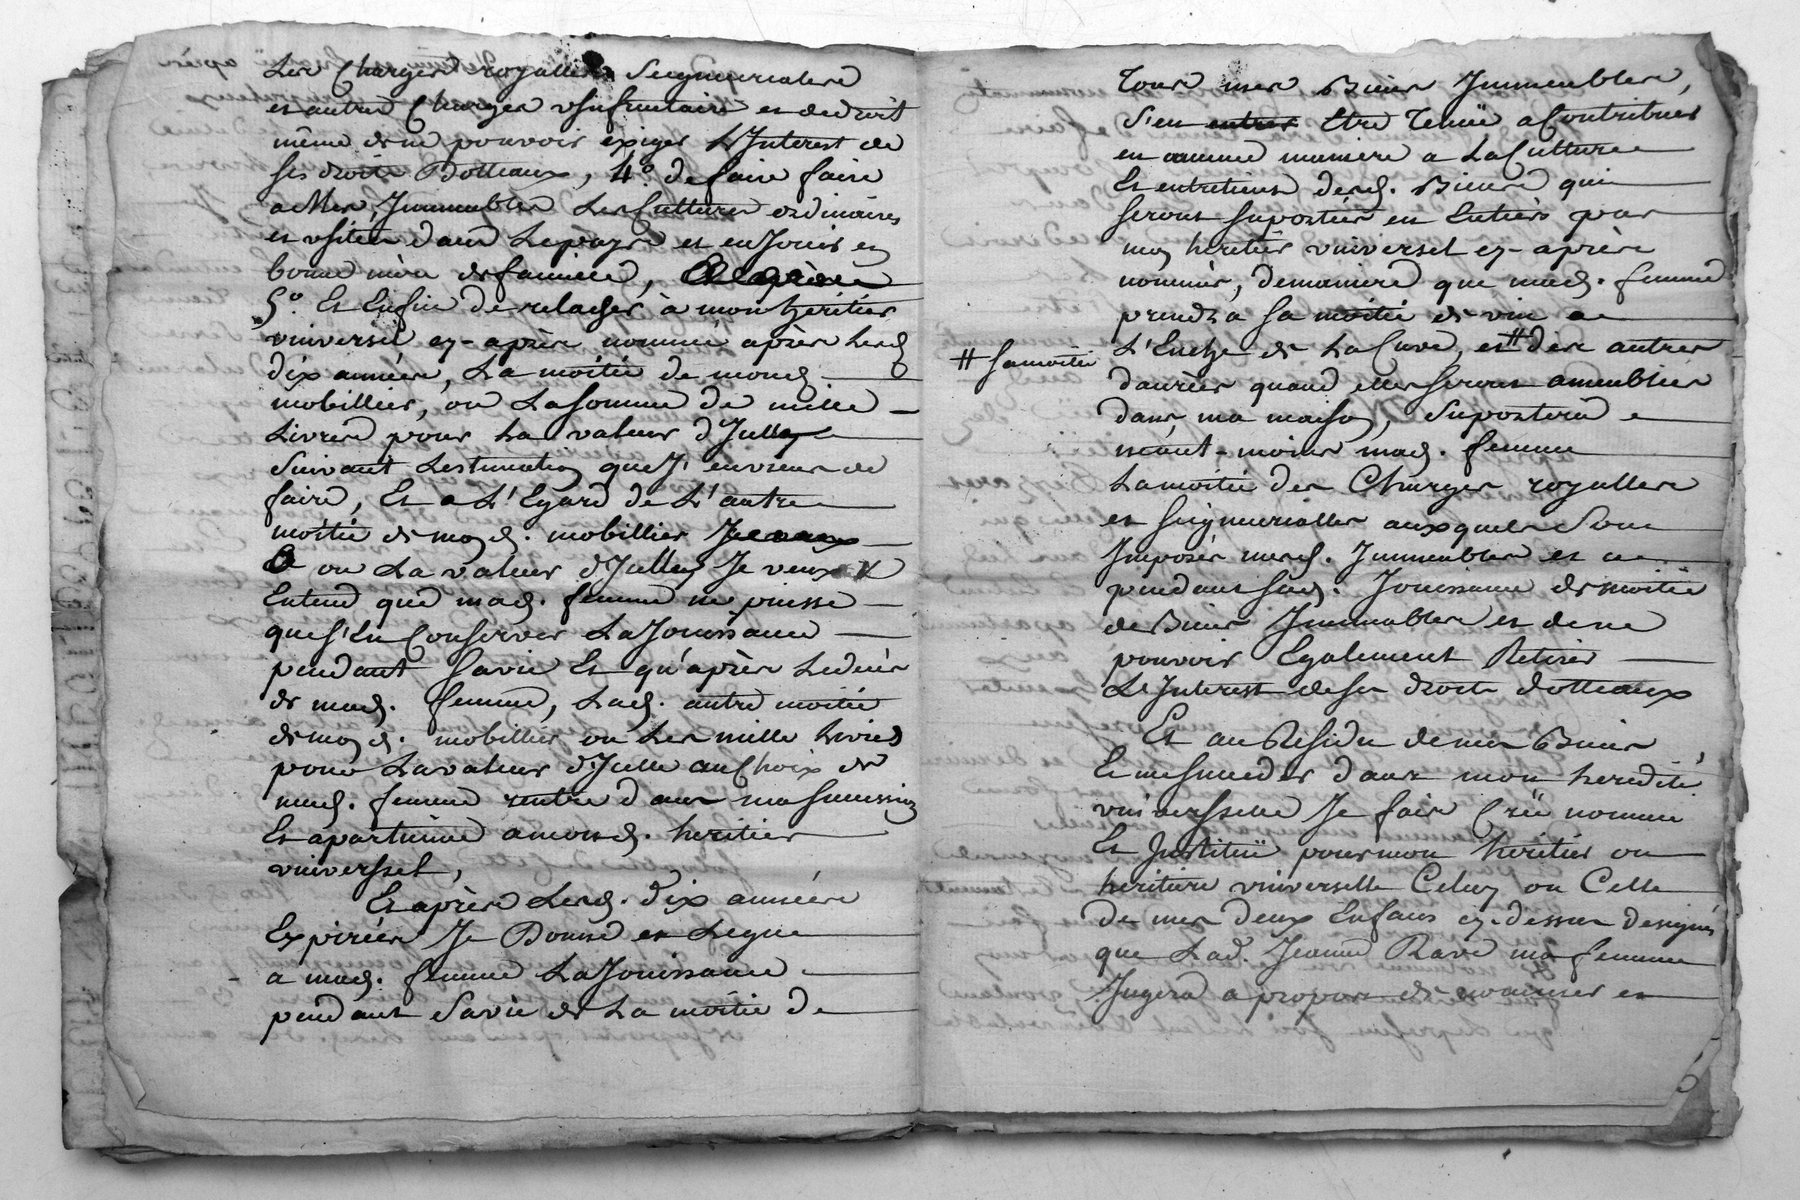 Les Charges royalles Seigneurialles
et autres Charges usufructaire et de droit
même de ne pouvoir exiger L'Interest de
ses droits Dotteaux, 4.º de faire faire
a Mes Immeubles Les Cultures ordinaires
et usitées dans Le pays et en Jouir en
bonne mère de famille,
5.º Et Enfin de relacher à mon héritier
universel cy-après nommé après Lesd
dix années, La moitié de mond.
mobillier, ou La Somme de mille
Livres pour La valeur d'Julluy
Suivant Lestimation que J'en viens de
faire, Et a L'Egard de L'autre
moitié de mond. mobillier
ou La valeur d'Julluy Je veux &
Entend que mad. femme ne puisse
que s'En Conserver La Jouissance
pendant Sa vie Et qu'après Le décès
de mad. femme, Lad. autre moitié
de mond. mobillier ou Les mille Livres
pour La valeur d'Julluy au Choix de
mad. femme rentre dans ma Sucession
Et apartienne a mond. heritier
universsel,
Et après Lesd. dix années
Expirées Je Donne et Legue
a mad. femme La Jouissance
pendant Sa vie de La moitié de
Tous mes Biens Immeubles,
S'en entres Etre Tenüe a Contribuer
en aucune maniere a La Culture
Et entretient desd. Biens qui
seront suportés en Entiers par
mon heritier universel cy-après
nommés, de maniere que mad. femme
prendra sa moitié de vin a
L'Enche de La Cuve, et # des autres
# sa moitié
danrées quand elles seront ameublées
dans ma maison, Suportera
néant-moins mad. femme
La moitié des Charges royalles
et seigneurialles auxquels Sont
Imposés mesd. Immeubles et ce
pendant sad. Jouissance de moitié
de Biens Immeubles et de ne
pouvoir Egalement Retirer
L'Interest de ses droits dotteaux
Et au Residu de mes Biens
Et me succeder dans mon heredité
universselle Je fais Créé nomme
Et Institüe pour mon héritier ou
heritiere universelle Celuy ou Celle
de mes deux Enfans cy-dessus designés
que Lad. Jeanne Rave ma femme
Jugera a propos de nommer et